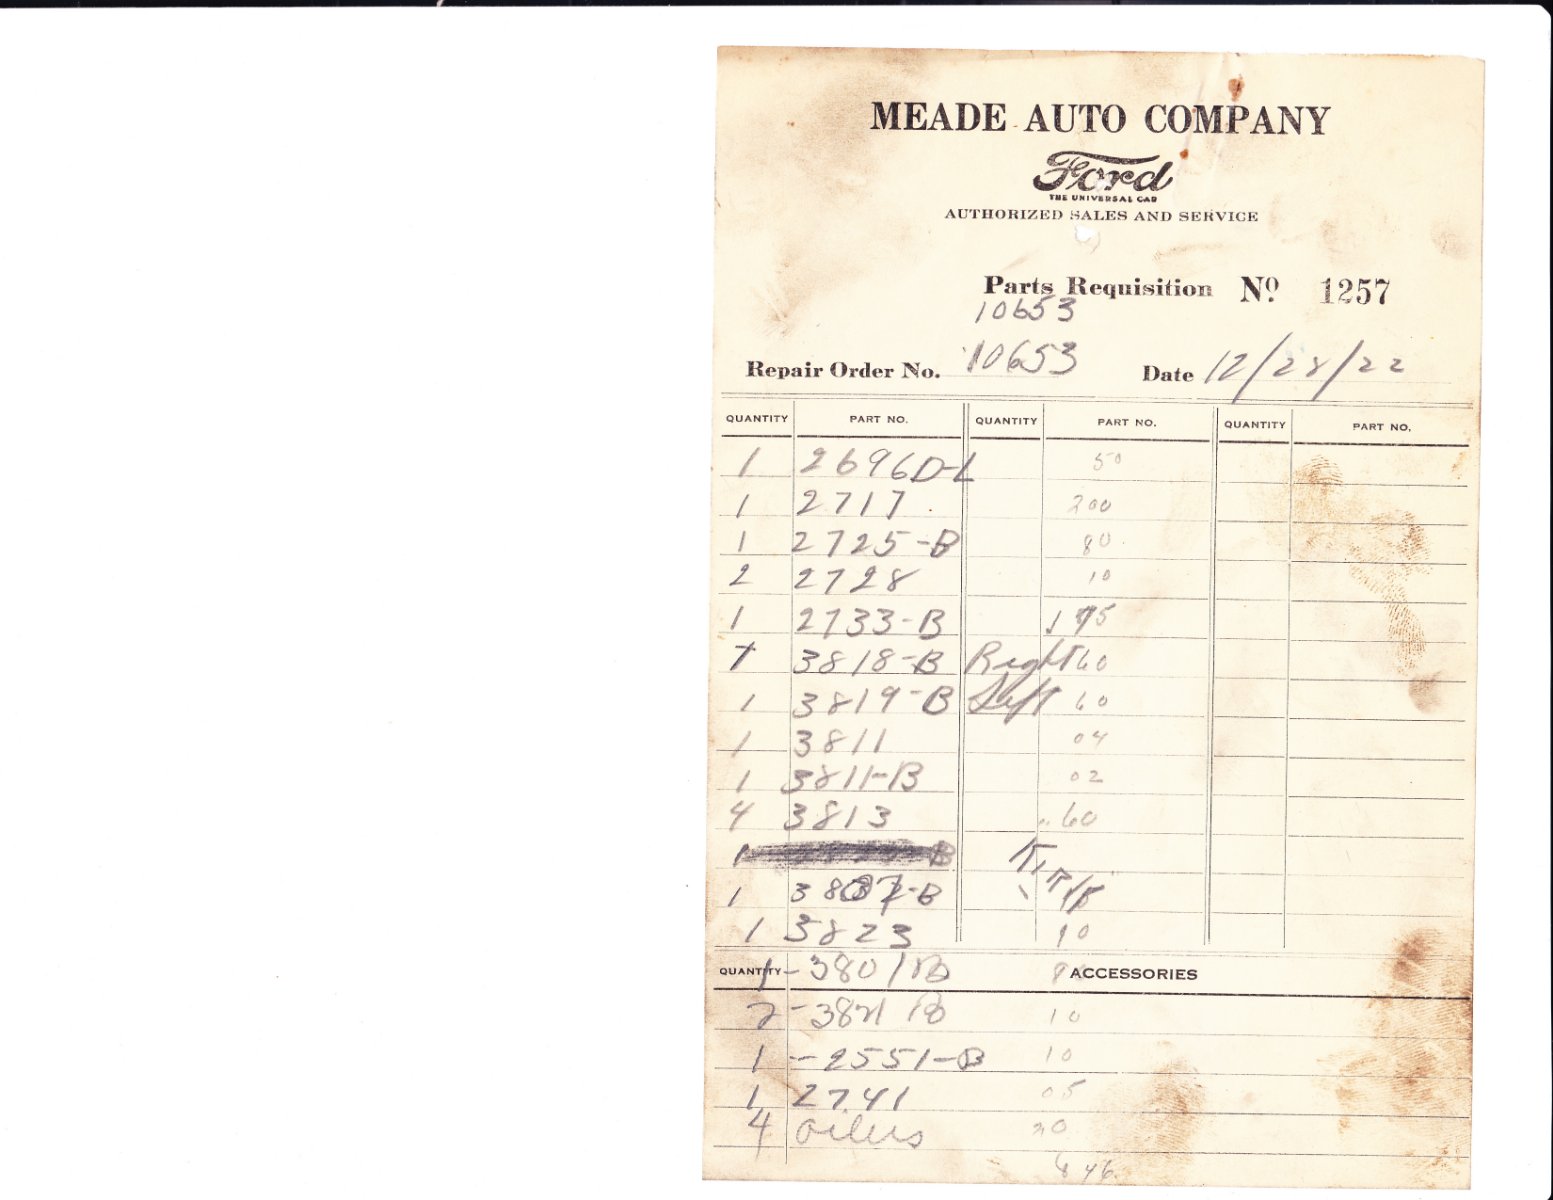 MEADE AUTO COMPANY
Ford
THE UNIVERSAL CAR
AUTHORIZED SALES AND SERVICE
Parts Requisition No 1257
10653
Repair Order No. 10653 Date 12/28/22
QUANTITY PART NO. QUANTITY PART NO. QUANTITY PART NO.
1 2696D-L 50
1 2717 200
1 2725-B 80
2 2728 10
1 2733-B 175
1 3818-B Right 60
1 3819-B Left 60
1 3811 04
1 3811-B 02
4 3813 60
1 B
1 3807-B
1 3823 10
QUANTITY ACCESSORIES
1 - 3801 B
2 - 3821 B 10
1 - 2551-B 10
1 2741 05
4 oilers 20
46